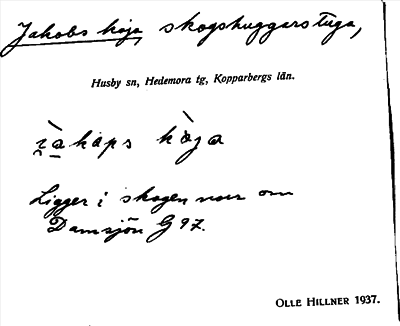 Jakobs koja, skogshuggarstuga,
Husby sn, Hedemora tg, Kopparbergs län.
kòja
Ligger i skogen norr om
Damsjön G 97.
OLLE HILLNER 1937.